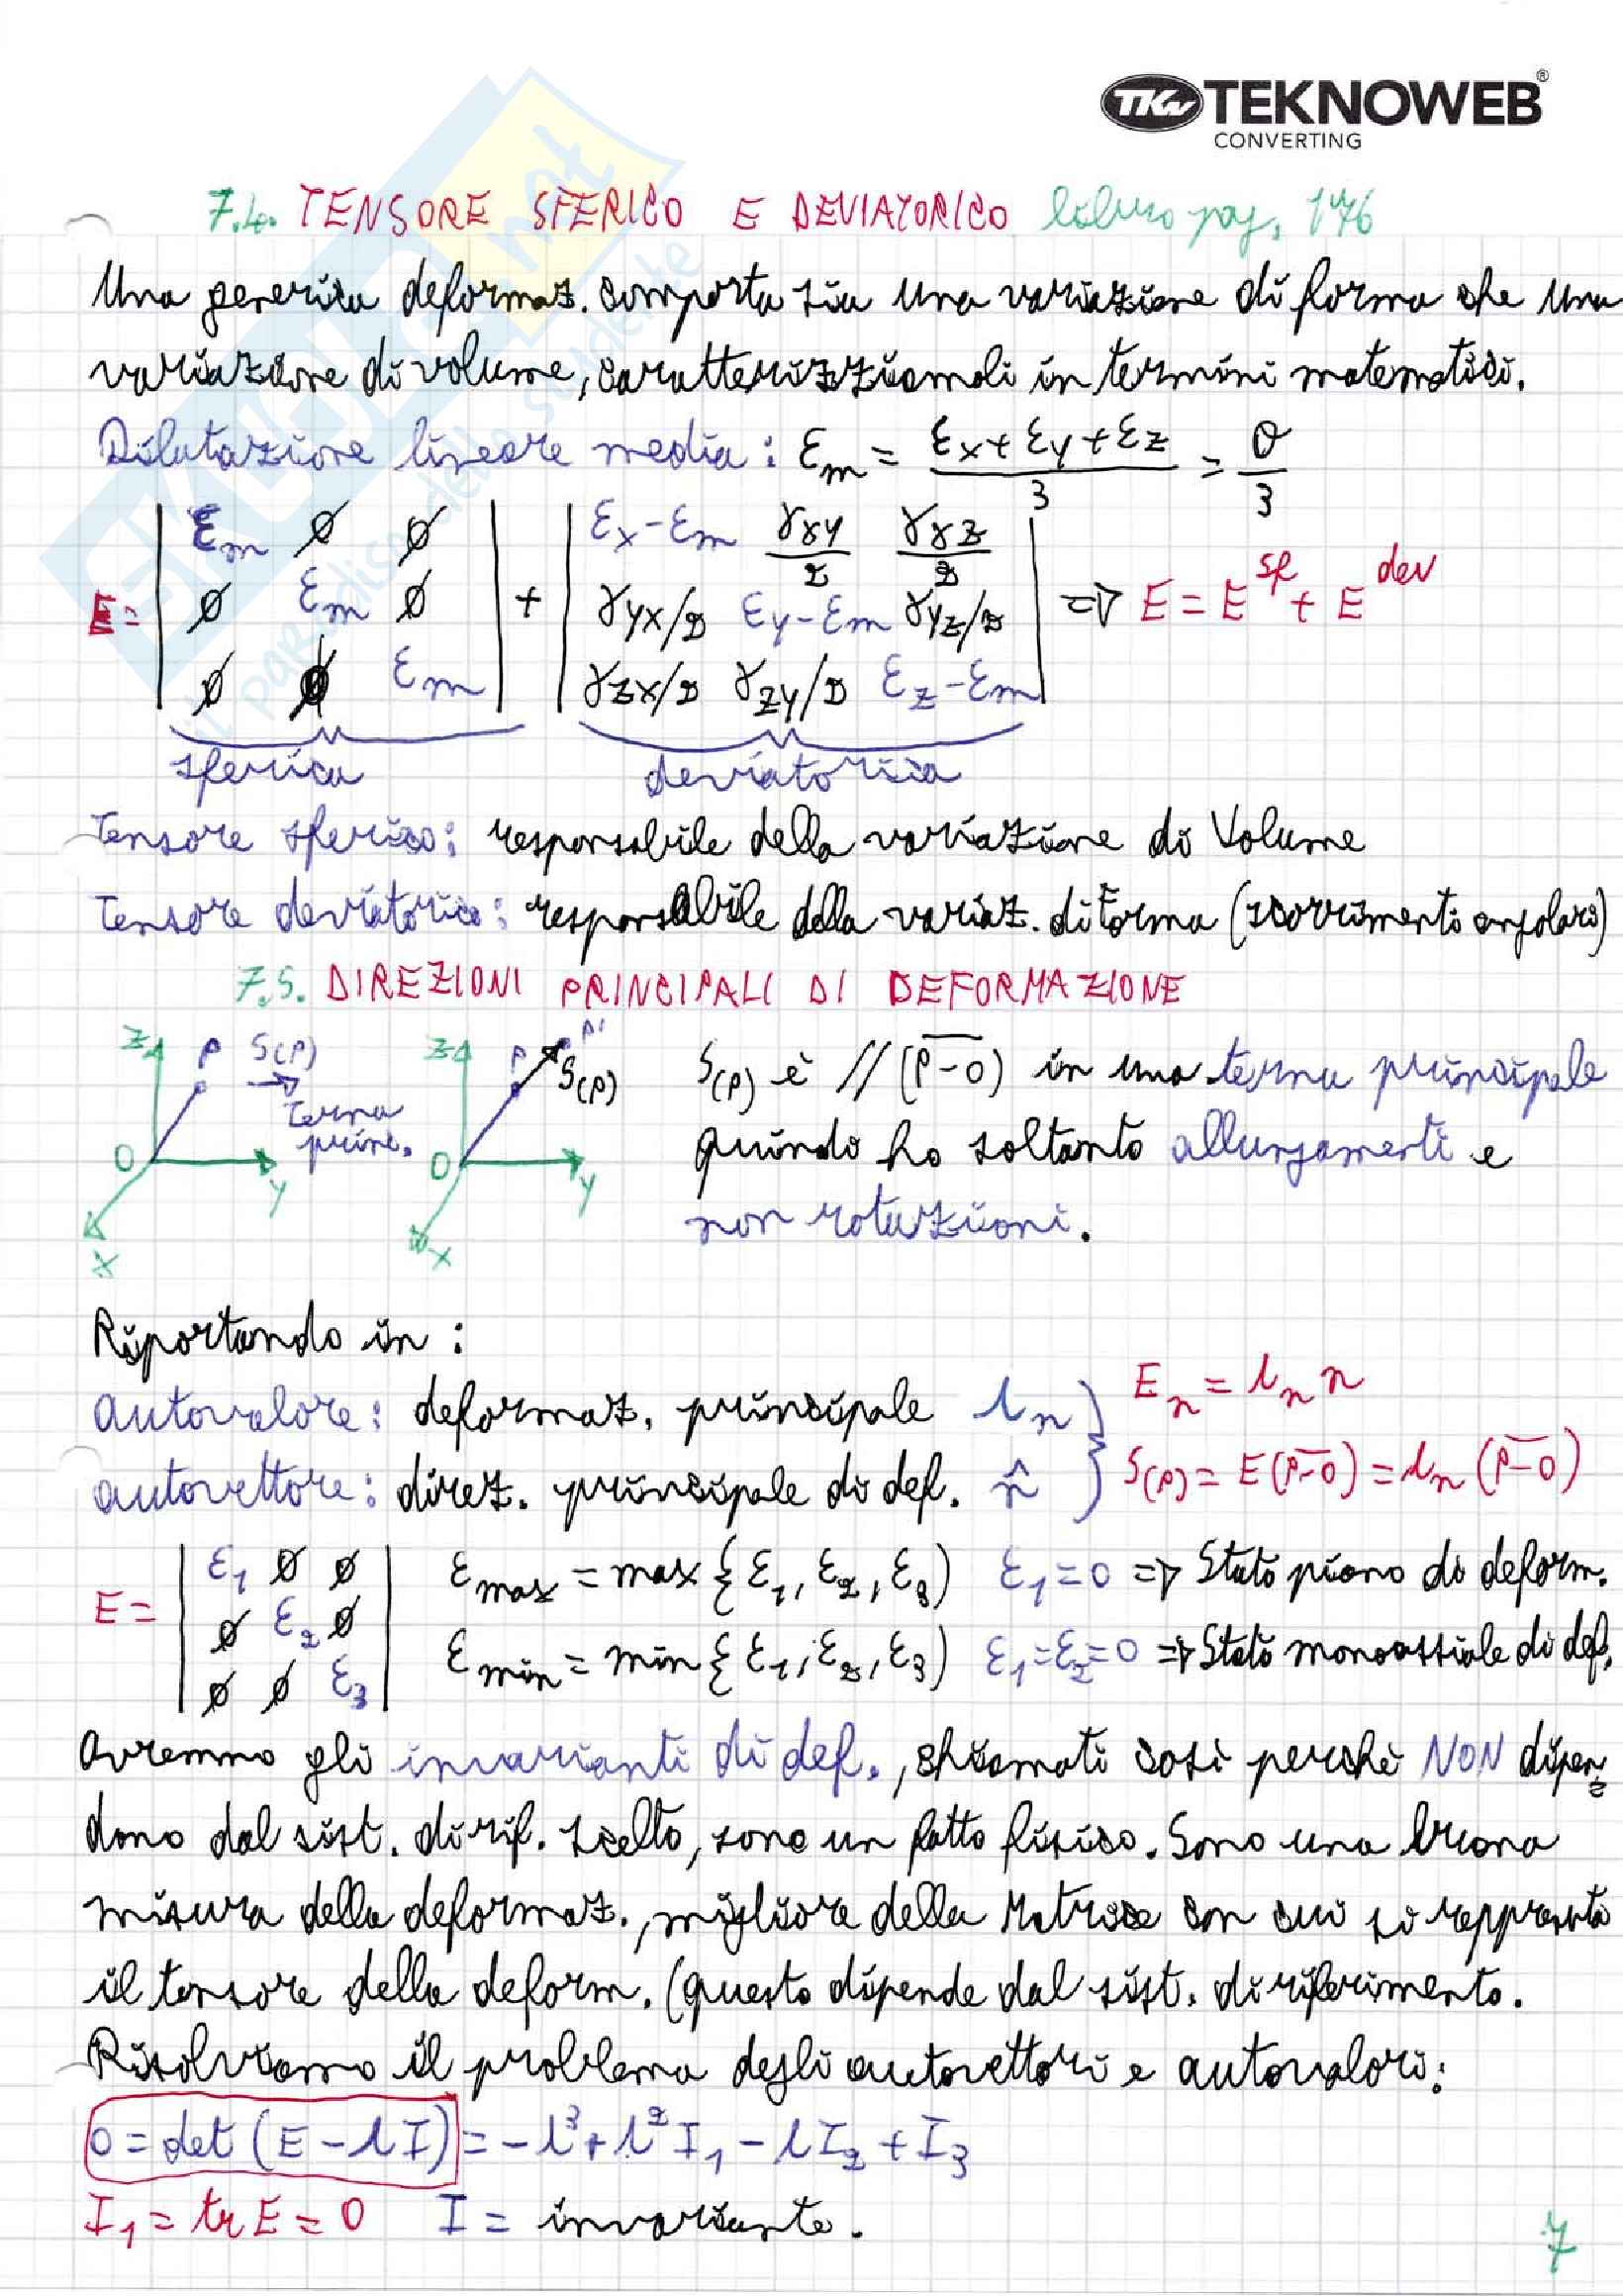 TKW TEKNOWEB®
CONVERTING
7.4. TENSORE SFERICO E DEVIATORICO libro pag. 176
Una generica deformaz. comporta sia una variazione di forma che una
variazione di volume, caratterizziamoli in termini matematici.
Dilatazione lineare media: εm = (εx + εy + εz)/3 = θ/3
E = | εm ∅ ∅ | + | εx-εm γxy/2 γxz/2 |
| ∅ εm ∅ | | γyx/2 εy-εm γyz/2 | ⇒ E = E^sf + E^dev
| ∅ ∅ εm | | γzx/2 γzy/2 εz-εm |
sferica deviatorica
Tensore sferico: responsabile della variazione di Volume
Tensore deviatorico: responsabile della variaz. di forma (scorrimenti angolari)
7.5. DIREZIONI PRINCIPALI DI DEFORMAZIONE
z P S(P) → terna princ. O y x
z P P' S(P) O y x
S(P) è // (P-O) in una terna principale
quindi ho soltanto allungamenti e
non rotazioni.
Riportando in:
autovalore: deformaz. principale λn } En = λn n
autovettore: direz. principale di def. n̂ } S(P) = E(P-O) = λn (P-O)
E = | ε1 ∅ ∅ | εmax = max {ε1, ε2, ε3) ε1=0 ⇒ Stato piano di deform.
| ∅ ε2 ∅ |
| ∅ ∅ ε3 | εmin = min {ε1, ε2, ε3) ε1=ε2=0 ⇒ Stato monoassiale di def.
Avremo gli invarianti di def., chiamati così perchè NON dipen
dono dal sist. di rif. scelto, sono un fatto fisico. Sono una buona
misura della deformaz., migliore della Matrice con cui si rappresenta
il tensore della deform. (questo dipende dal sist. di riferimento.
Risolviamo il problema degli autovettori e autovalori:
0 = det (E - λI) = -λ³ + λ² I1 - λI2 + I3
I1 = tr E = θ I = invariante.
7
SKUOLA.net
il paradiso dello studente